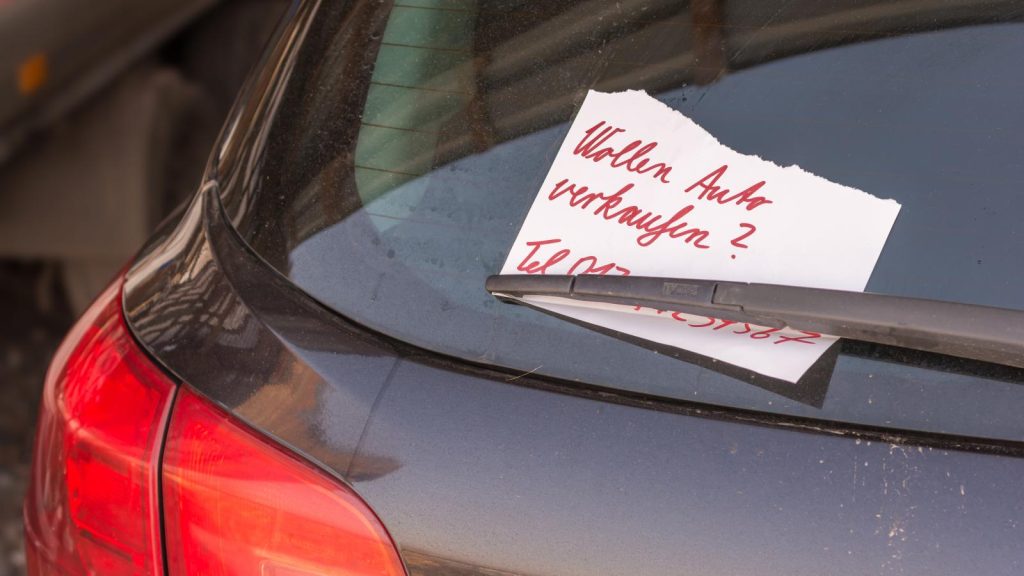 Wollen Auto
verkaufen?
Tel 017